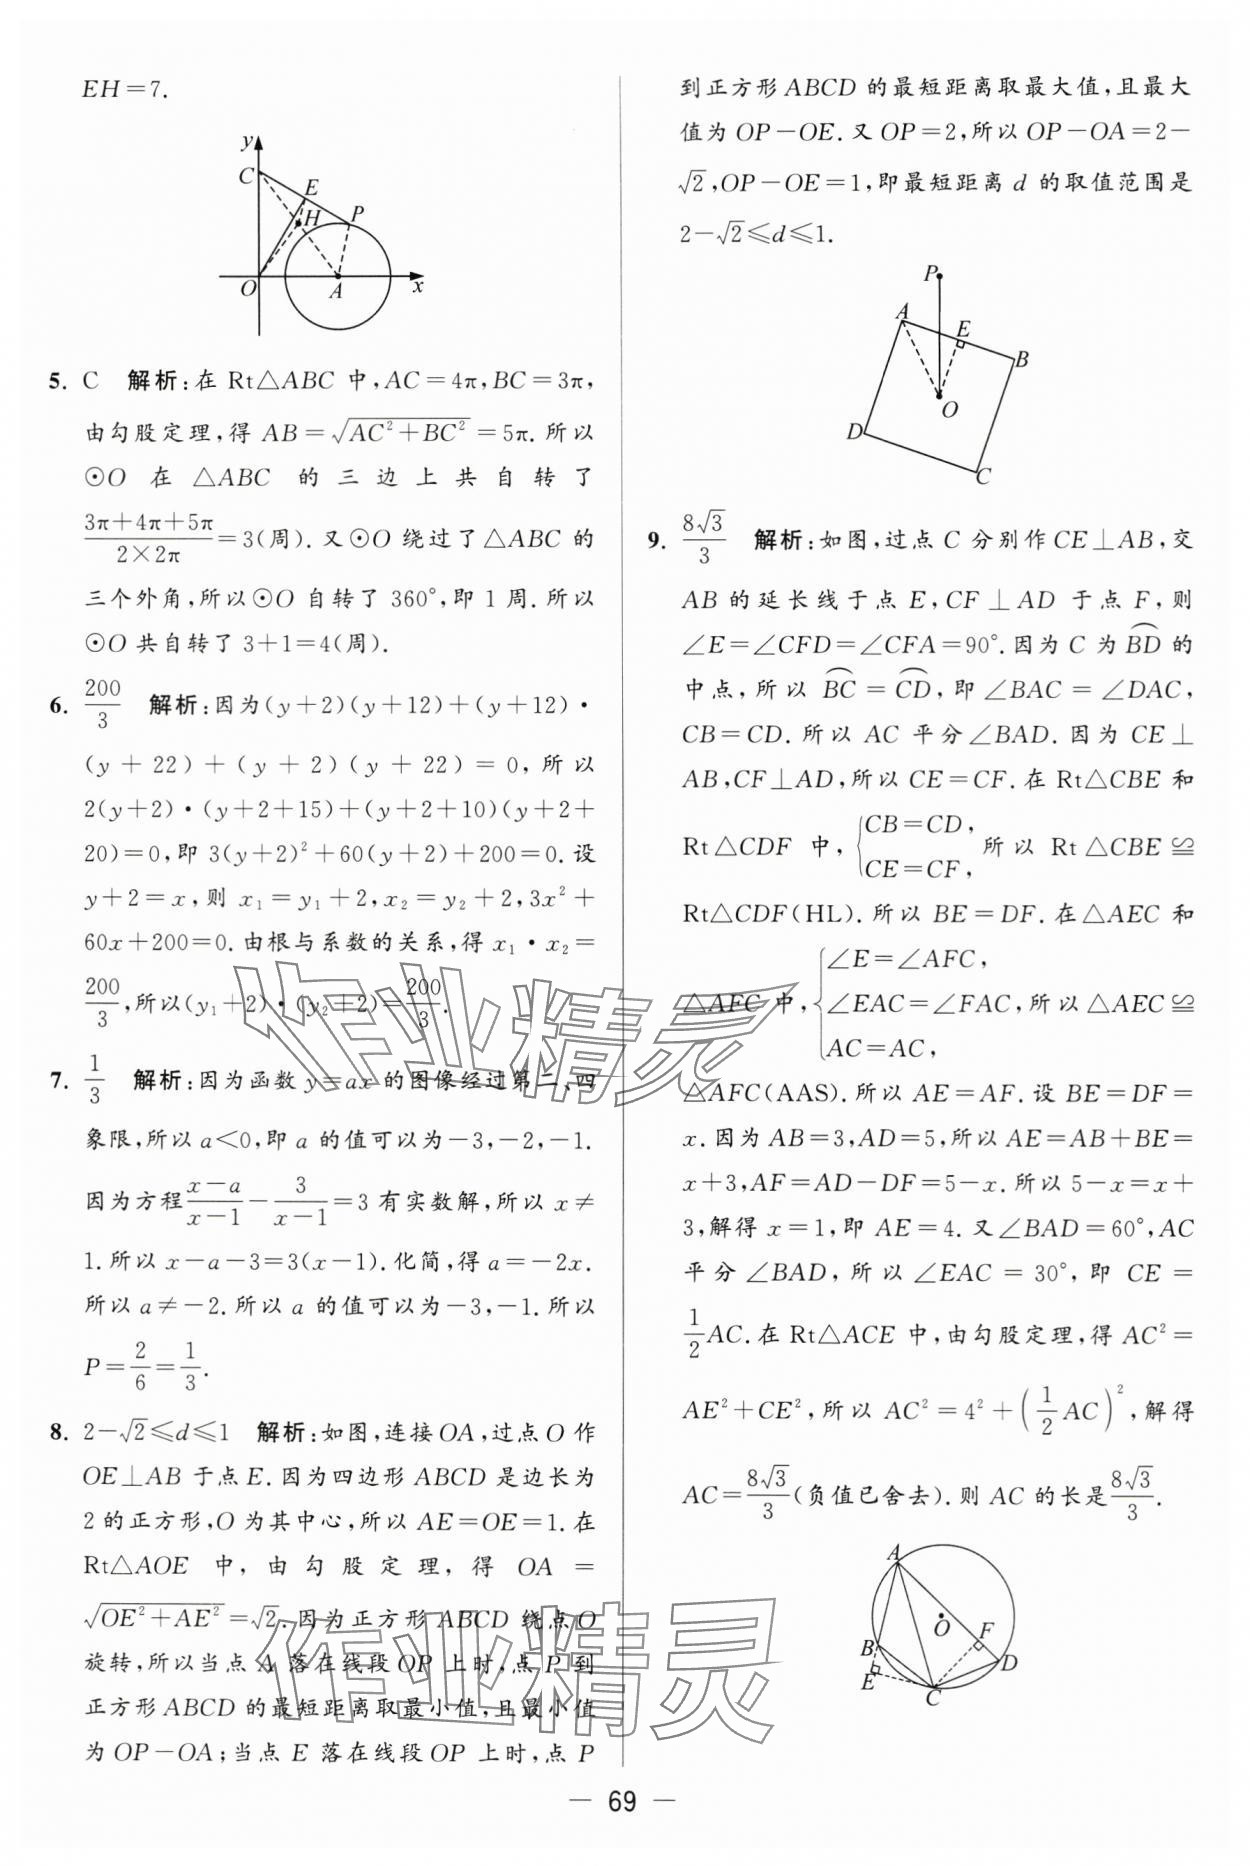 EH=7.
y
C
E
H
P
O
A
x
5. C 解析:在 Rt△ABC 中,AC=4π,BC=3π,
由勾股定理,得 AB=√(AC²+BC²)=5π.所以
⊙O 在 △ABC 的三边上共自转了
(3π+4π+5π)/(2×2π)=3(周).又⊙O 绕过了△ABC 的
三个外角,所以⊙O 自转了 360°,即 1 周.所以
⊙O 共自转了 3+1=4(周).
6. 200/3 解析:因为(y+2)(y+12)+(y+12)·
(y+22)+(y+2)(y+22)=0,所以
2(y+2)·(y+2+15)+(y+2+10)(y+2+
20)=0,即 3(y+2)²+60(y+2)+200=0.设
y+2=x,则 x₁=y₁+2,x₂=y₂+2,3x²+
60x+200=0.由根与系数的关系,得 x₁·x₂=
200/3,所以(y₁+2)·(y₂+2)=200/3.
7. 1/3 解析:因为函数 y=ax 的图像经过第二、四
象限,所以 a<0,即 a 的值可以为-3,-2,-1.
因为方程(x-a)/(x-1)-3/(x-1)=3 有实数解,所以 x≠
1.所以 x-a-3=3(x-1).化简,得 a=-2x.
所以 a≠-2.所以 a 的值可以为-3,-1.所以
P=2/6=1/3.
8. 2-√2≤d≤1 解析:如图,连接 OA,过点 O 作
OE⊥AB 于点 E.因为四边形 ABCD 是边长为
2 的正方形,O 为其中心,所以 AE=OE=1.在
Rt△AOE 中,由勾股定理,得 OA=
√(OE²+AE²)=√2.因为正方形 ABCD 绕点 O
旋转,所以当点 A 落在线段 OP 上时,点 P 到
正方形 ABCD 的最短距离取最小值,且最小值
为 OP-OA;当点 E 落在线段 OP 上时,点 P
到正方形 ABCD 的最短距离取最大值,且最大
值为 OP-OE.又 OP=2,所以 OP-OA=2-
√2,OP-OE=1,即最短距离 d 的取值范围是
2-√2≤d≤1.
P
A
E
B
O
D
C
9. 8√3/3 解析:如图,过点 C 分别作 CE⊥AB,交
AB 的延长线于点 E,CF⊥AD 于点 F,则
∠E=∠CFD=∠CFA=90°.因为 C 为 ⌒BD 的
中点,所以 ⌒BC=⌒CD,即 ∠BAC=∠DAC,
CB=CD.所以 AC 平分∠BAD.因为 CE⊥
AB,CF⊥AD,所以 CE=CF.在 Rt△CBE 和
Rt△CDF 中,{CB=CD, CE=CF, 所以 Rt△CBE≌
Rt△CDF(HL).所以 BE=DF.在△AEC 和
△AFC 中,{∠E=∠AFC, ∠EAC=∠FAC, AC=AC, 所以△AEC≌
△AFC(AAS).所以 AE=AF.设 BE=DF=
x.因为 AB=3,AD=5,所以 AE=AB+BE=
x+3,AF=AD-DF=5-x.所以 5-x=x+
3,解得 x=1,即 AE=4.又∠BAD=60°,AC
平分∠BAD,所以∠EAC=30°,即 CE=
1/2AC.在 Rt△ACE 中,由勾股定理,得 AC²=
AE²+CE²,所以 AC²=4²+(1/2AC)²,解得
AC=8√3/3(负值已舍去).则 AC 的长是8√3/3.
A
O
F
B
D
E
C
作业精灵
作业精灵
— 69 —